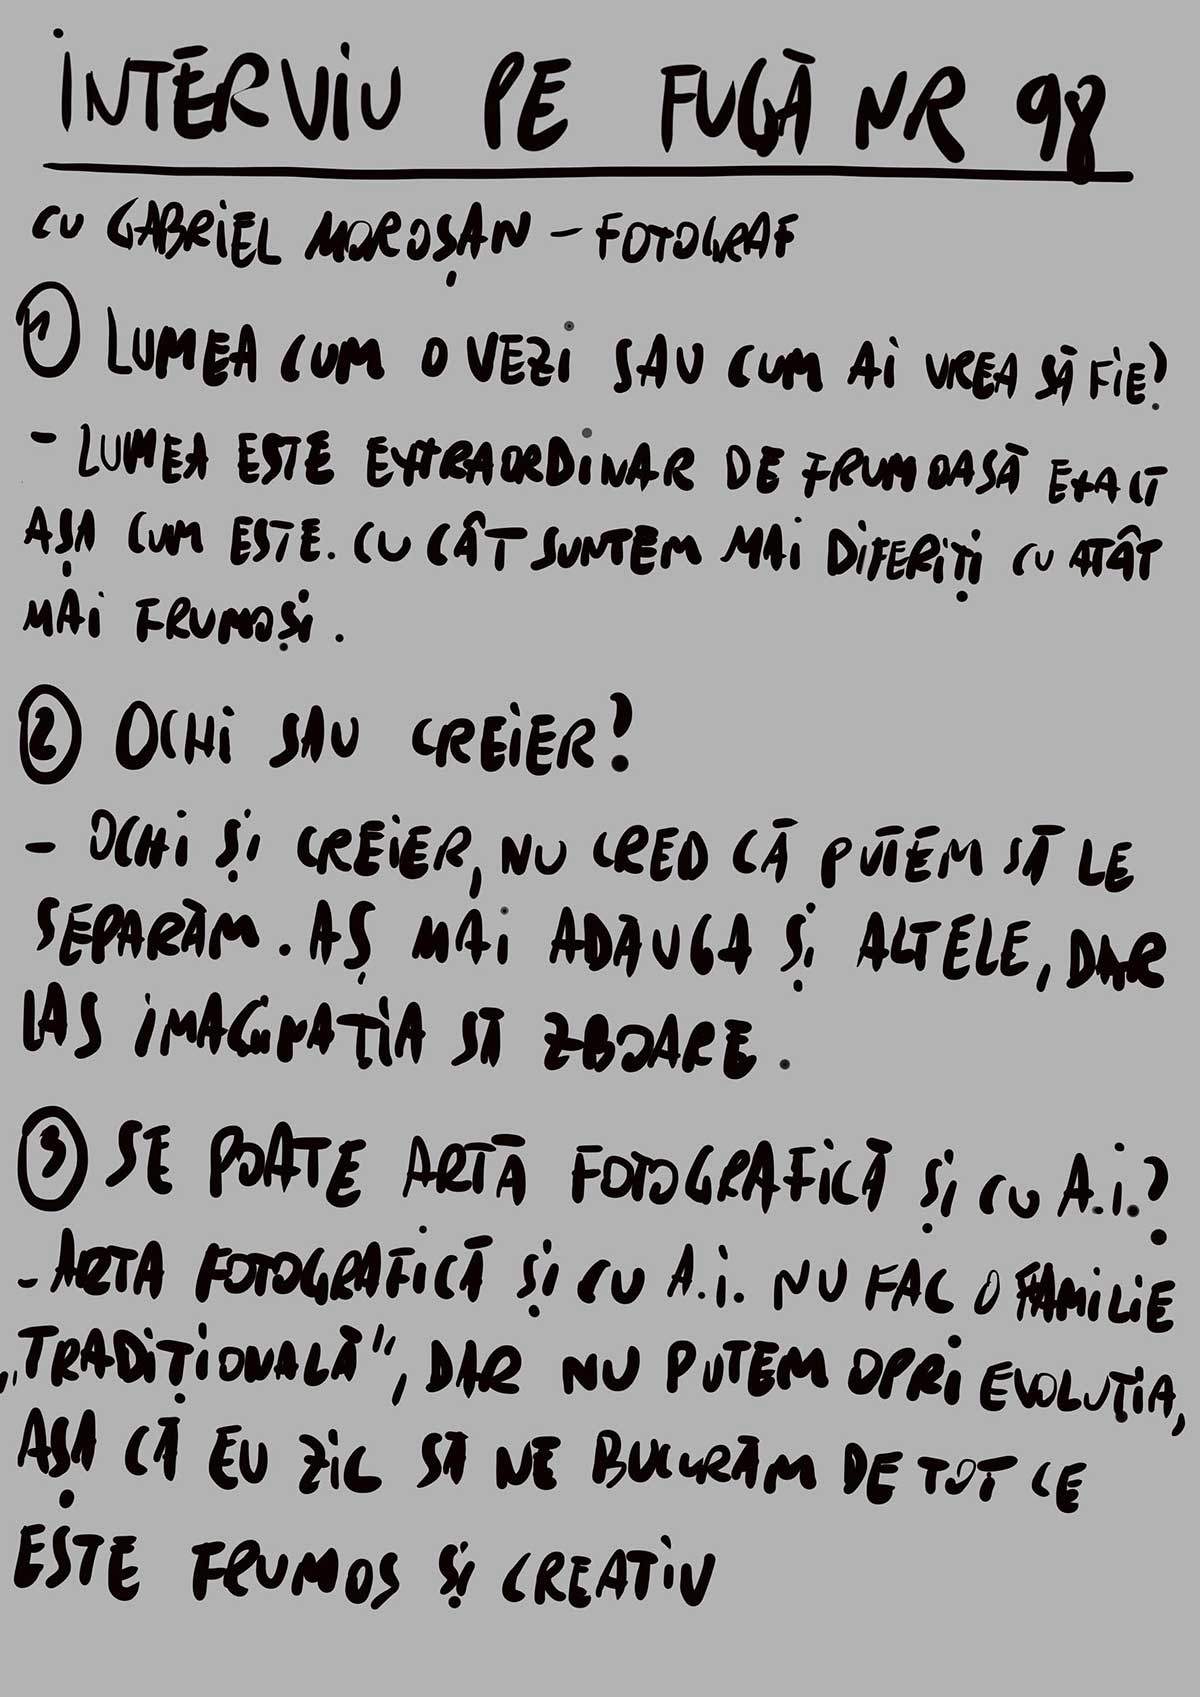 INTERVIU PE FUGĂ NR 98
CU GABRIEL MOROȘAN - FOTOGRAF
1 LUMEA CUM O VEZI SAU CUM AI VREA SĂ FIE?
- LUMEA ESTE EXTRAORDINAR DE FRUMOASĂ EXACT
AȘA CUM ESTE. CU CÂT SUNTEM MAI DIFERIȚI CU ATÂT
MAI FRUMOȘI.
2 OCHI SAU CREIER?
- OCHI ȘI CREIER, NU CRED CĂ PUTEM SĂ LE
SEPARĂM. AȘ MAI ADĂUGA ȘI ALTELE, DAR
LAS IMAGINAȚIA SĂ ZBOARE.
3 SE POATE ARTĂ FOTOGRAFICĂ ȘI CU A.I.?
- ARTA FOTOGRAFICĂ ȘI CU A.I. NU FAC O FAMILIE
„TRADIȚIONALĂ", DAR NU PUTEM OPRI EVOLUȚIA,
AȘA CĂ EU ZIC SĂ NE BUCURĂM DE TOT CE
ESTE FRUMOS ȘI CREATIV